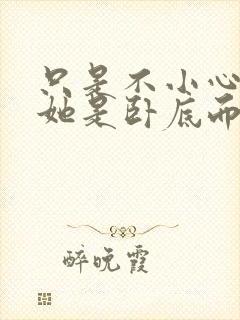 只是不小心
她是卧底而
醉晚霞